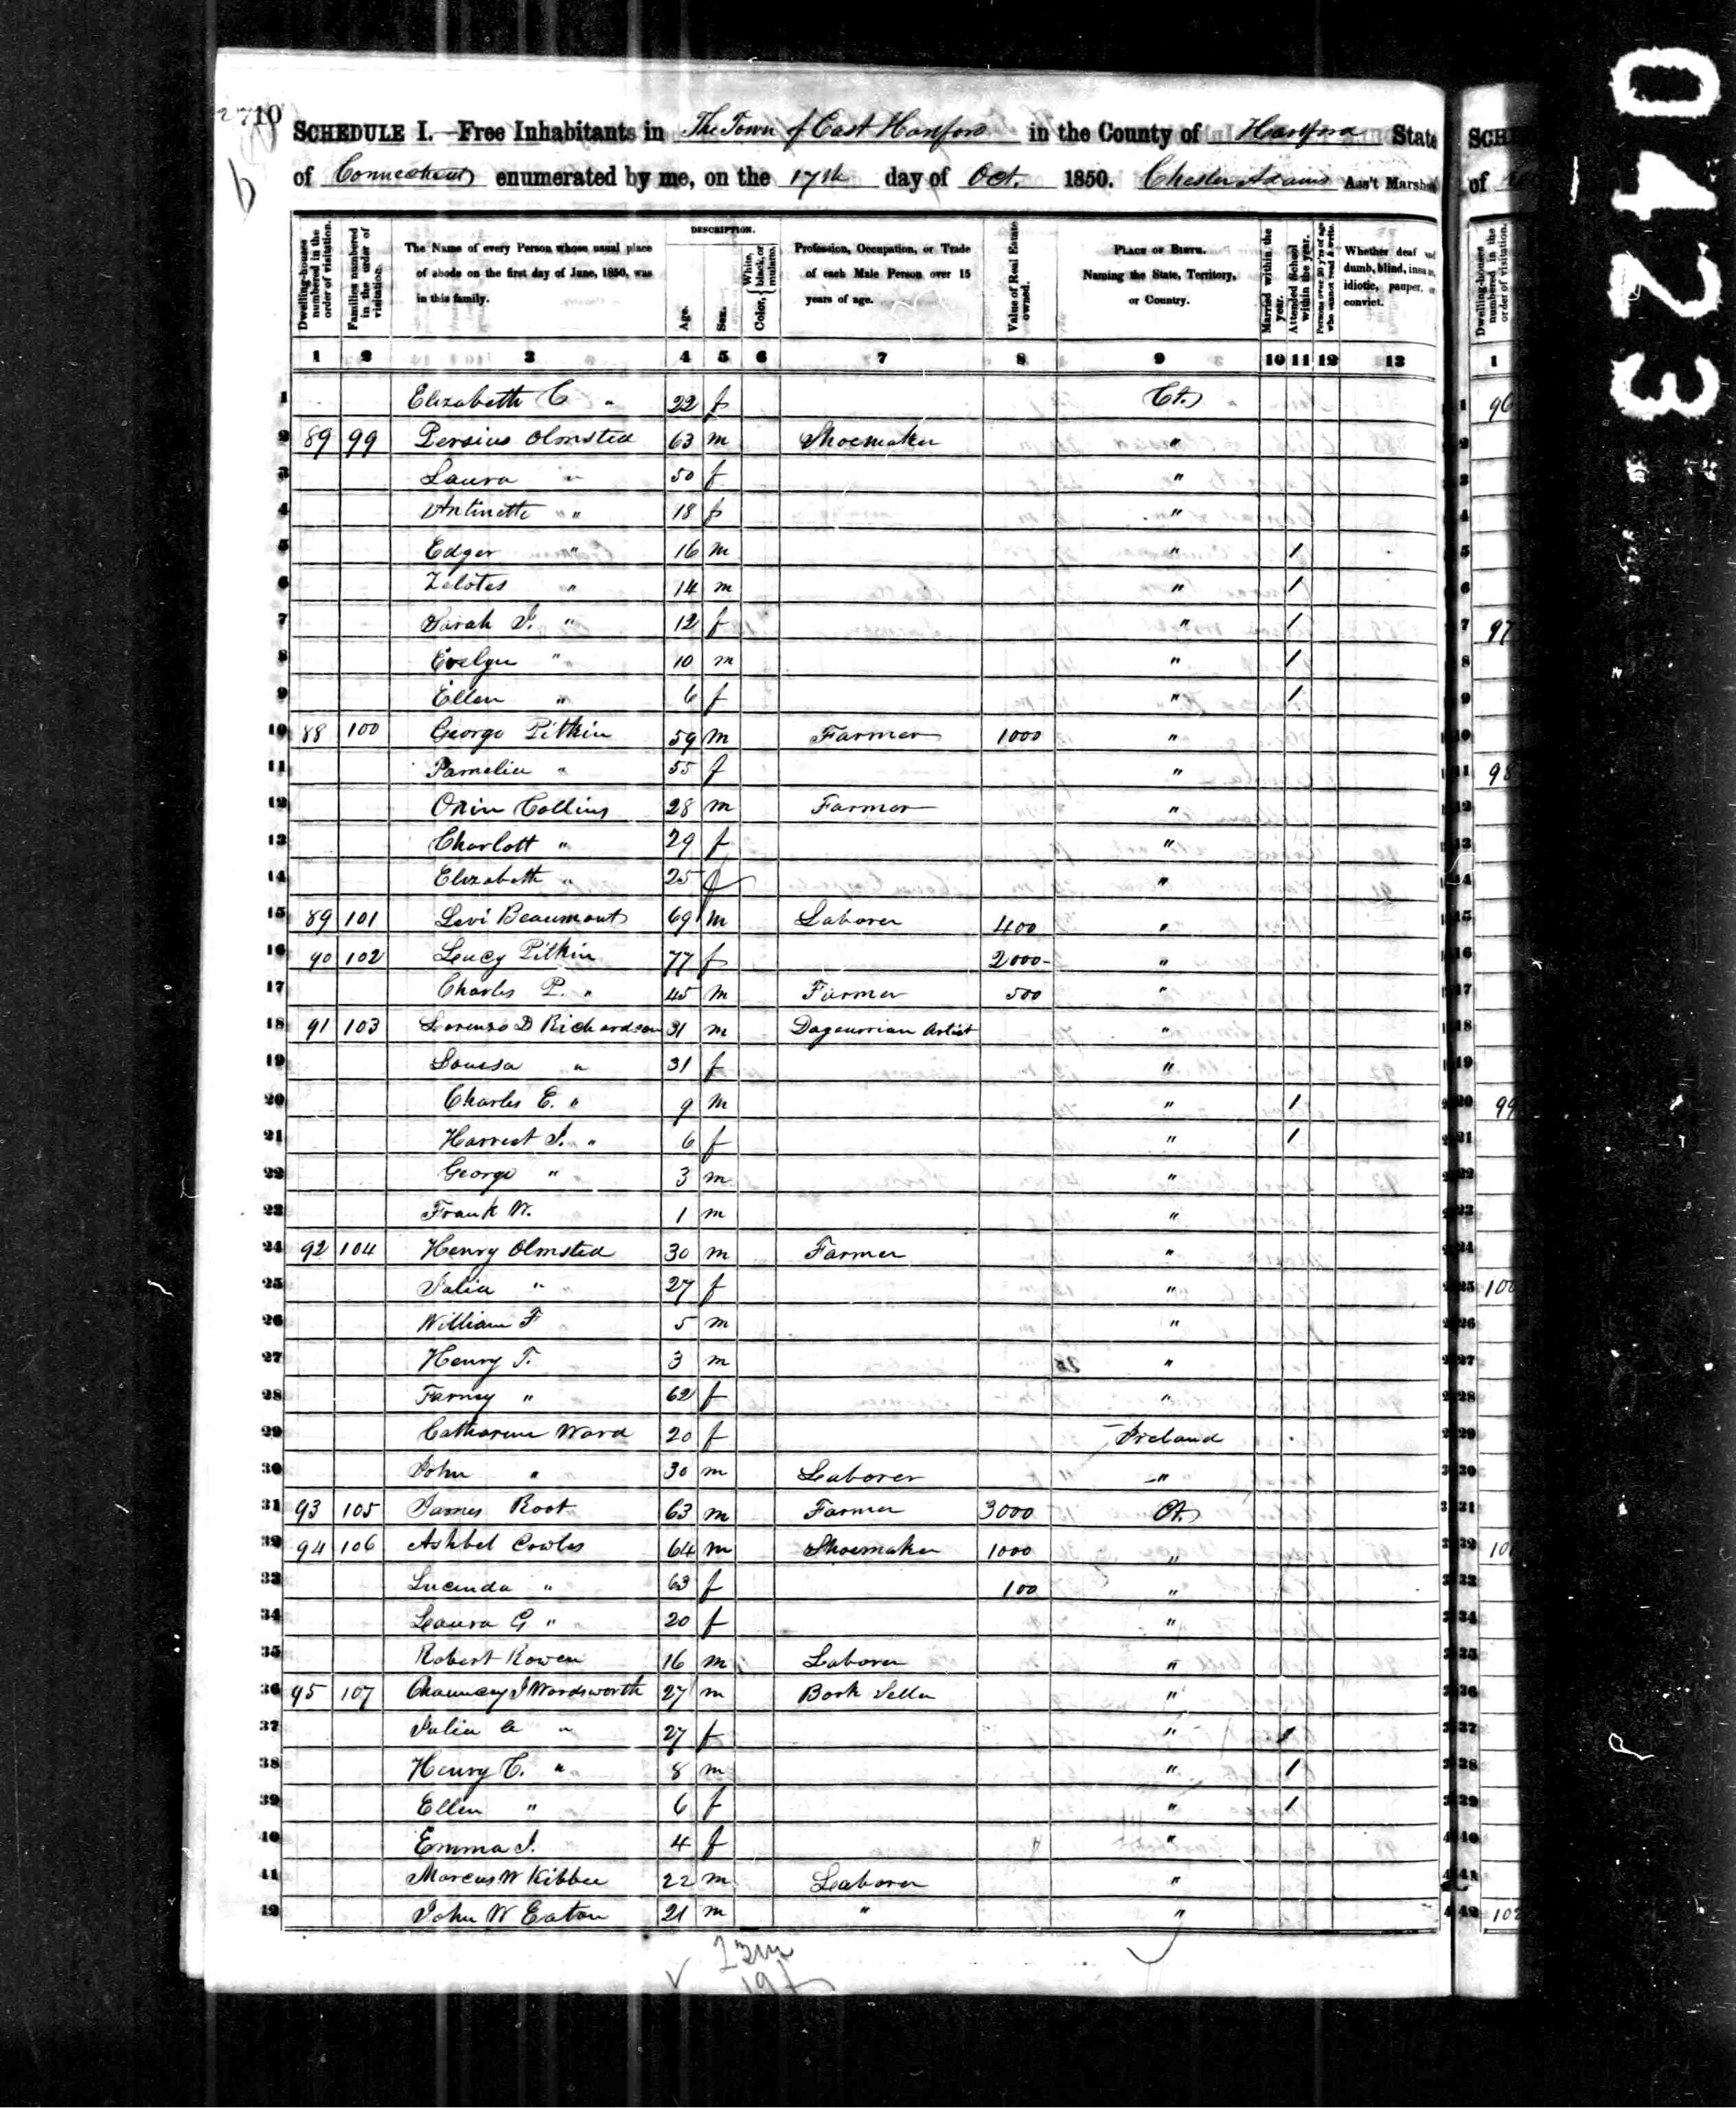 2710
SCHEDULE I.—Free Inhabitants in The Town of East Hartford in the County of Hartford State
of Connecticut enumerated by me, on the 17th day of Oct. 1850. Chester Adams Ass't Marshal
Dwelling-houses numbered in the order of visitation.
Families numbered in the order of visitation.
The Name of every Person whose usual place of abode on the first day of June, 1850, was in this family.
DESCRIPTION.
Age.
Sex.
Color, { White, black, or mulatto.
Profession, Occupation, or Trade of each Male Person over 15 years of age.
Value of Real Estate owned.
PLACE OF BIRTH. Naming the State, Territory, or Country.
Married within the year.
Attended School within the year.
Persons over 20 y'rs of age who cannot read & write.
Whether deaf and dumb, blind, insane, idiotic, pauper, or convict.
1 2 3 4 5 6 7 8 9 10 11 12 13
1 Elizabeth C " 22 f Ct.
2 89 99 Persius Olmsted 63 m Shoemaker "
3 Laura " 50 f "
4 Antinette " 18 f "
5 Edger " 16 m " /
6 Zelotes " 14 m " /
7 Sarah J. " 12 f " /
8 Evelyn " 10 m " /
9 Ellen " 6 f " /
10 88 100 George Pitkin 59 m Farmer 1000 "
11 Pamelia " 55 f "
12 Orin Collins 28 m Farmer "
13 Charlott " 29 f "
14 Elizabeth " 25 f "
15 89 101 Levi Beaumont 69 m Laborer 400 "
16 90 102 Lucy Pitkin 77 f 2000 "
17 Charles P. " 45 m Farmer 500 "
18 91 103 Lorenzo D Richardson 31 m Dageurrian Artist "
19 Louisa " 31 f "
20 Charles E. " 9 m " /
21 Harriet J. " 6 f " /
22 George " 3 m "
23 Frank W. 1 m "
24 92 104 Henry Olmsted 30 m Farmer "
25 Julia " 27 f "
26 William F 5 m "
27 Henry T. 3 m "
28 Farney " 62 f "
29 Catharine Ward 20 f Ireland
30 John " 30 m Laborer "
31 93 105 James Root 63 m Farmer 3000 Ct.
32 94 106 Ashbel Cowles 64 m Shoemaker 1000 "
33 Lucinda " 63 f 100 "
34 Laura G " 20 f "
35 Robert Rowen 16 m Laborer "
36 95 107 Chauncey J Wordsworth 27 m Book Seller "
37 Julia A " 27 f " /
38 Henry C. " 8 m " /
39 Ellen " 6 f " /
40 Emma J. 4 f "
41 Marcus W Kibbee 22 m Laborer "
42 John W Eaton 21 m " "
23m
19f
0423
SCHE
of
Dwelling-houses numbered in the order of visitation.
1
96
97
98
99
100
102